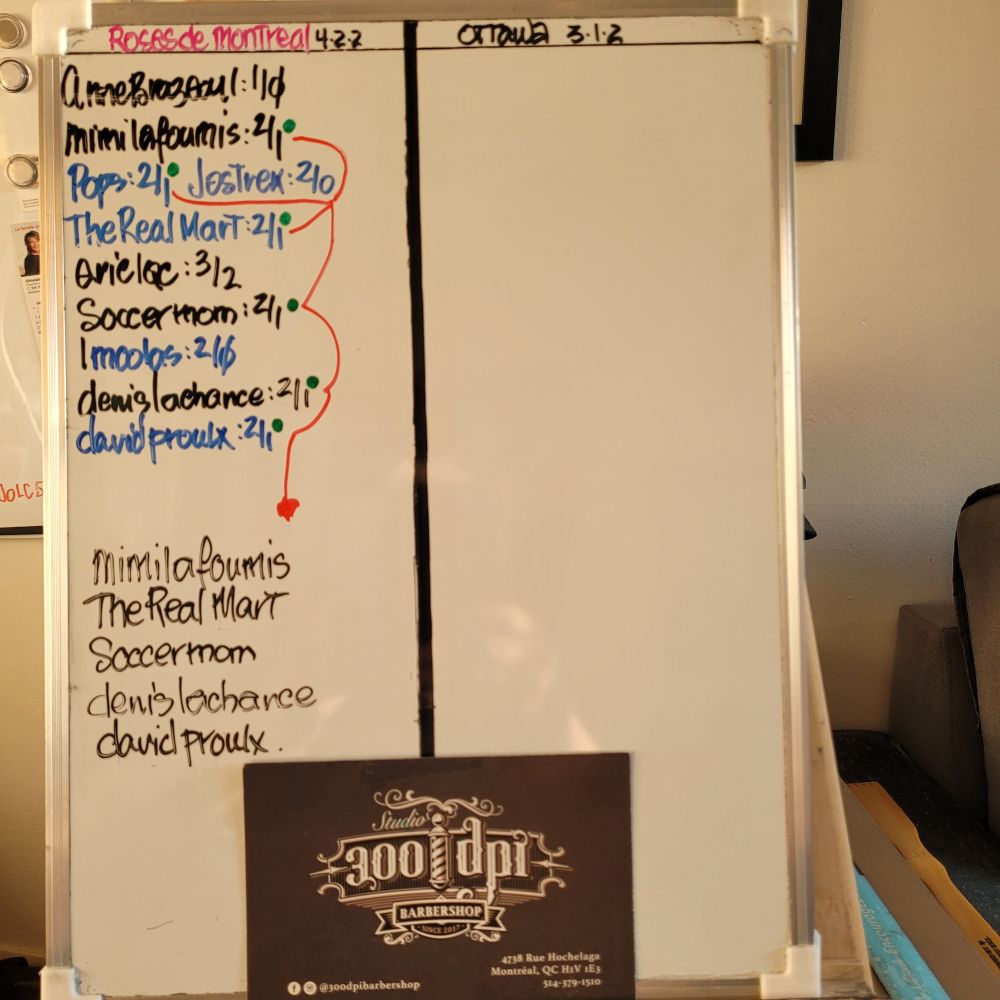 Roses de Montreal 4-2-2
Ottawa 3-1-2
mimilafourmis: 2/1
Pops: 2/1 Jostrex: 2/0
The Real Mart: 2/1
arielqc: 3/2
Soccermom: 2/1
1moobs: 2/0
denislachance: 2/1
davidproulx: 2/1
mimilafourmis
The Real Mart
Soccermom
denislachance
davidproulx.
Studio
300 dpi
BARBERSHOP
SINCE 2017
4738 Rue Hochelaga
Montréal, QC H1V 1E3
514-379-1510
@300dpibarbershop